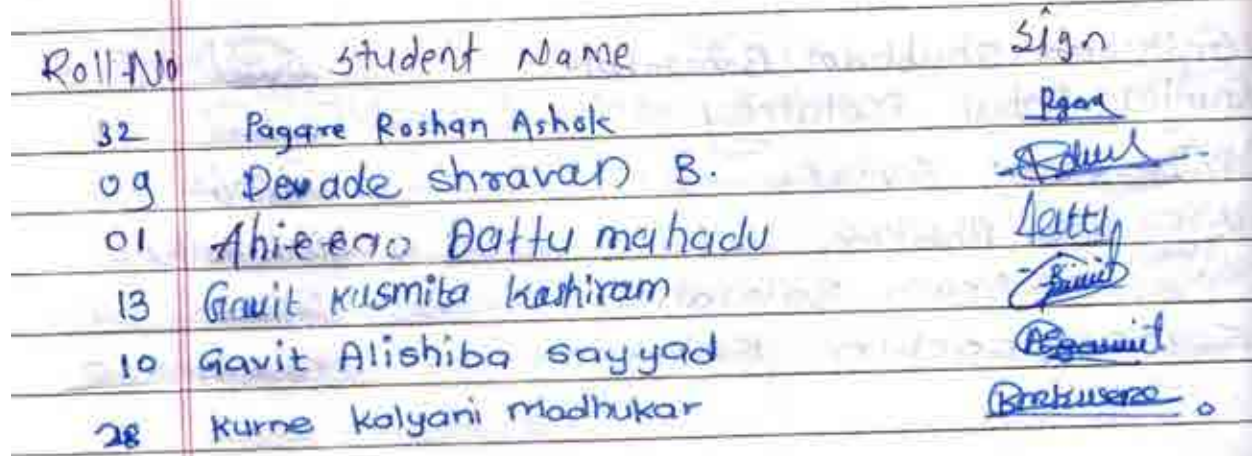 Roll No Student Name Sign
32 Pagare Roshan Ashok
09 Devade shravan B.
01 Ahireeao Dattu mahadu
13 Gavit Kusmita Kashiram
10 Gavit Alishiba sayyad
28 Kurne Kalyani Madhukar